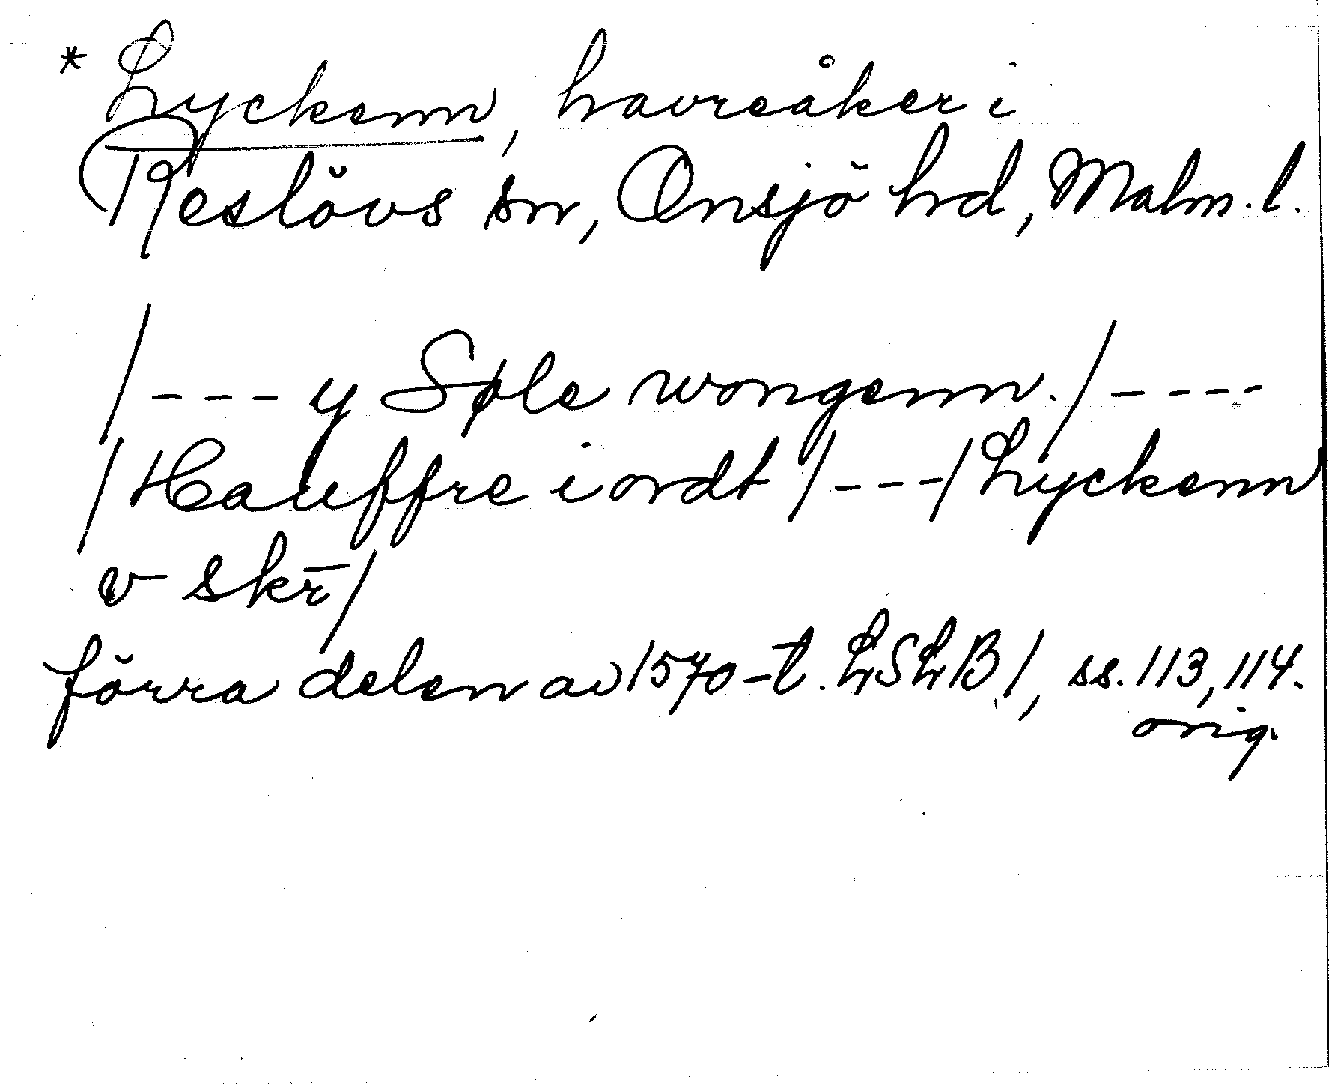 * Lyckenn, havreåker i
Reslövs sn, Onsjö hd, Malm. l.
/---y Søle wongenn./----
/Hauffre iordt/---/Lyckenn
v skr̄/
förra delen av 1570-t. LSLB/, ss. 113, 114.
orig.